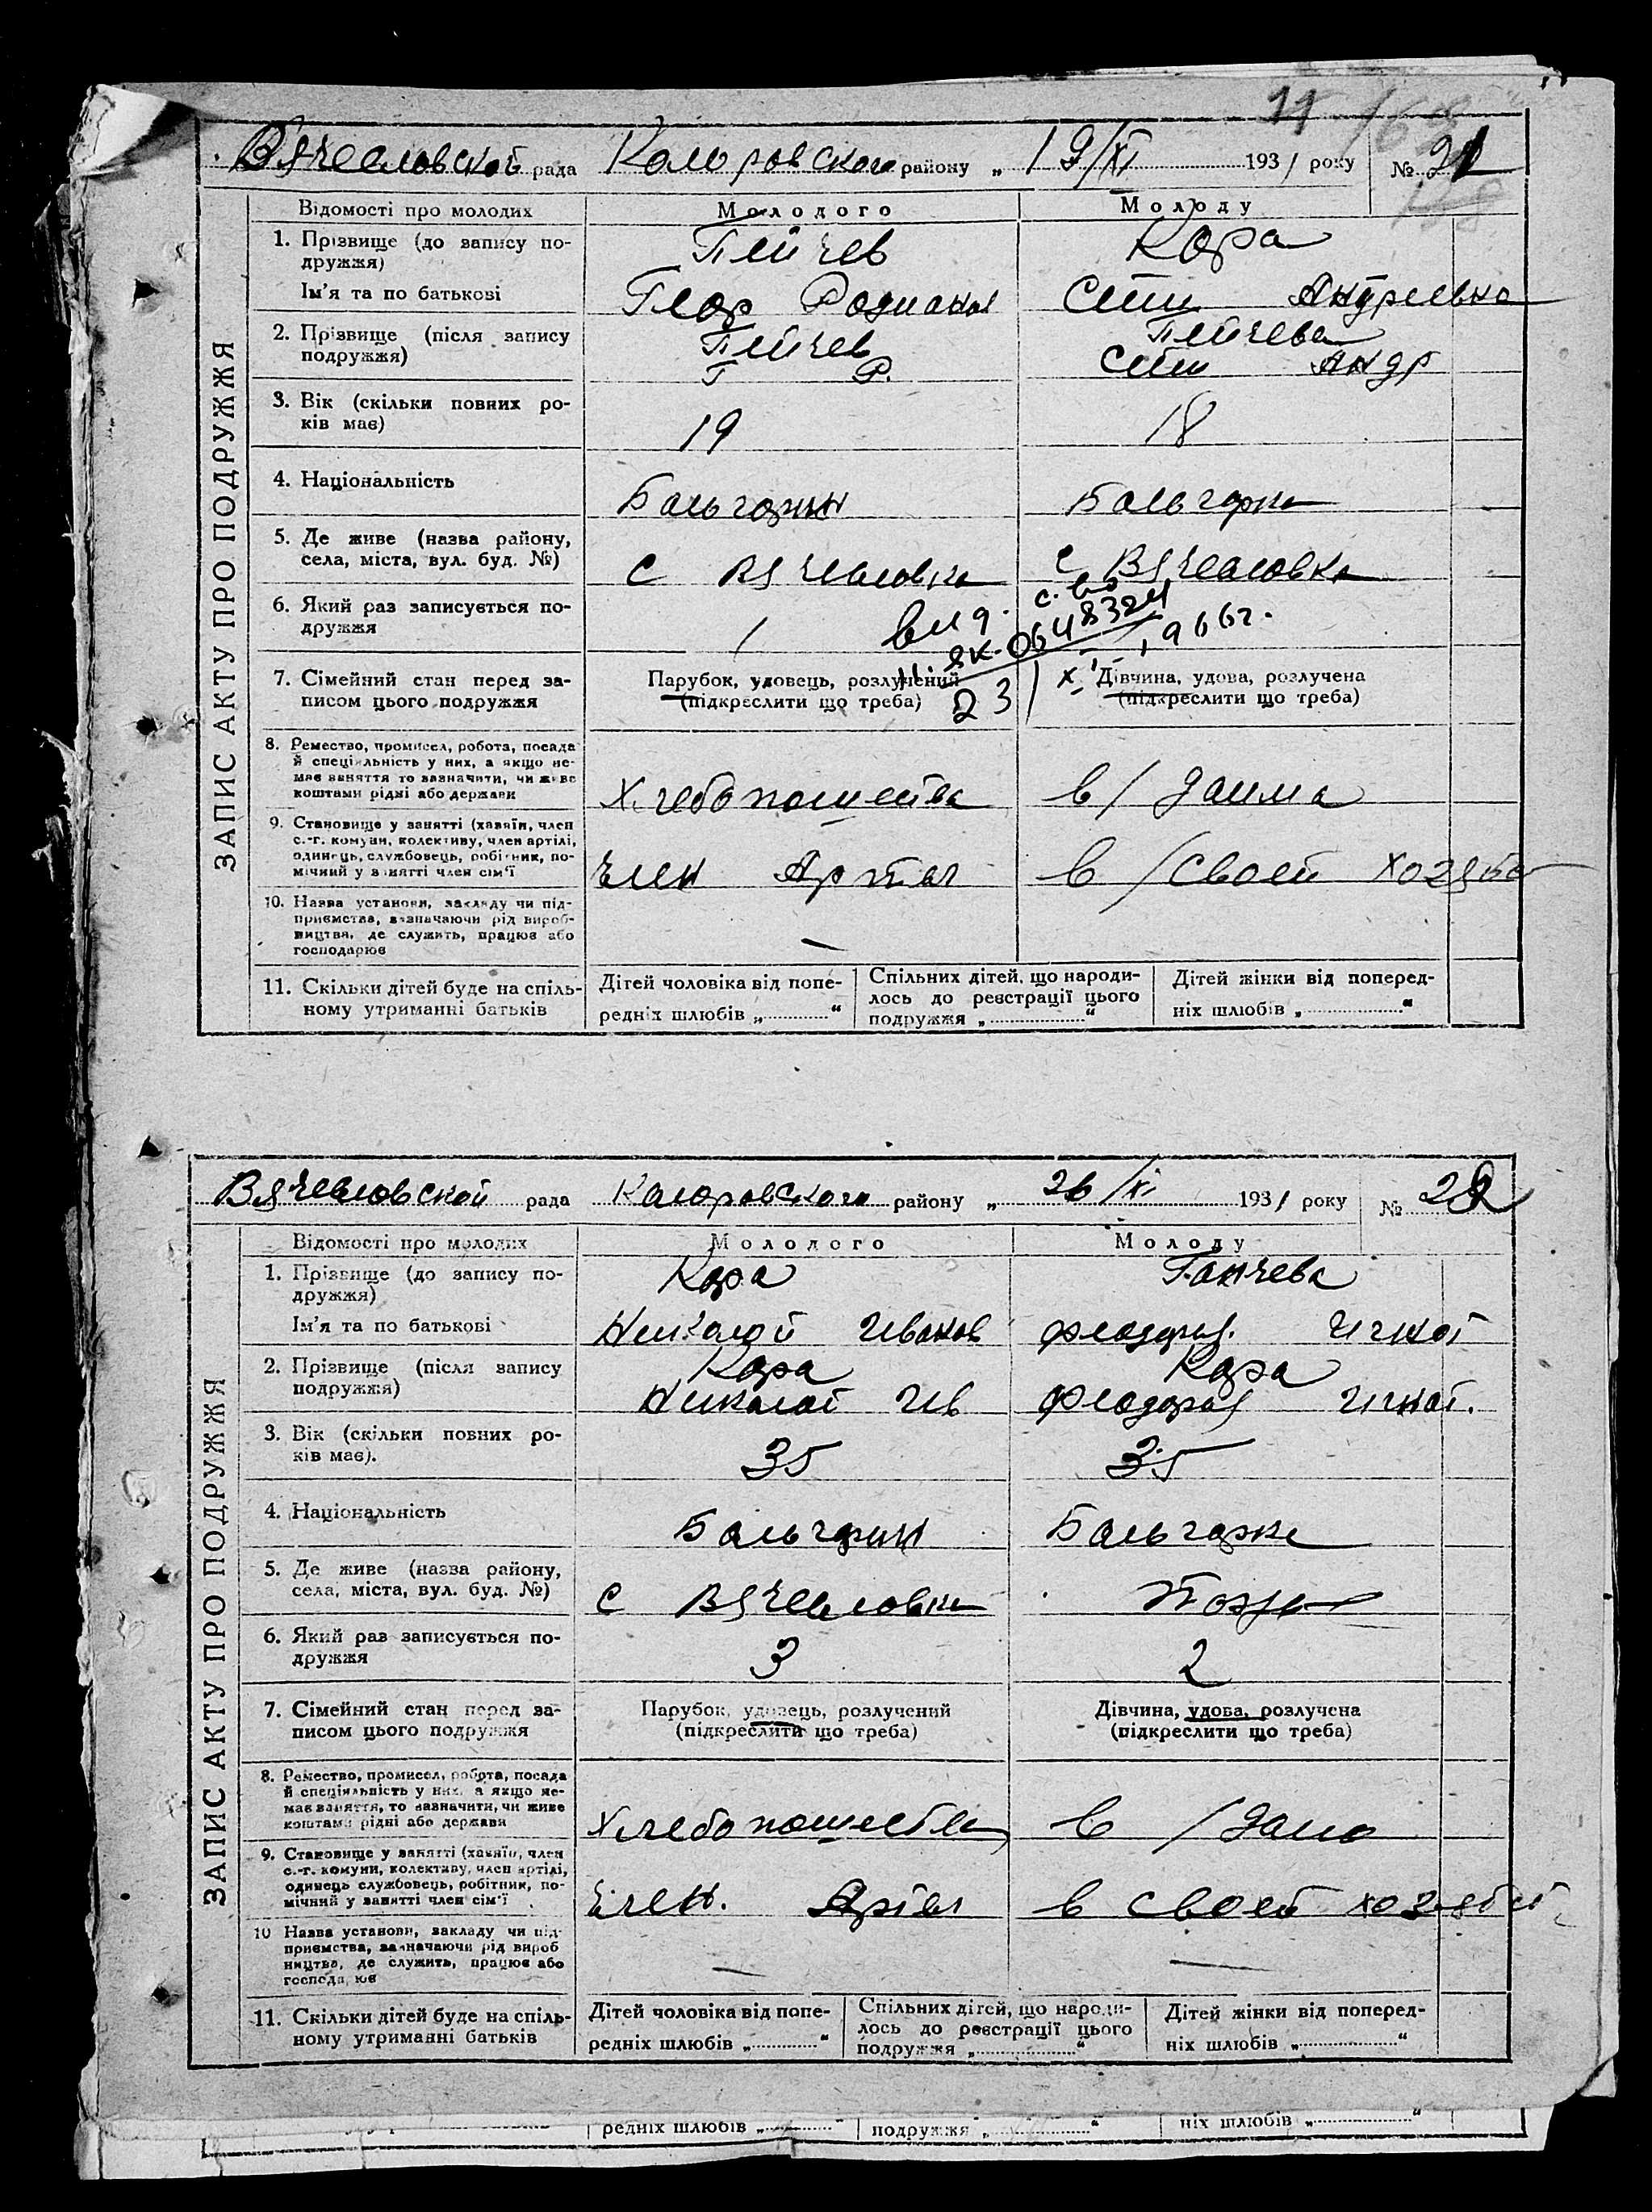 11
Вячеаловской рада Коларовского району „ 19/XI 1931 року № 21
ЗАПИС АКТУ ПРО ПОДРУЖЖЯ
Відомості про молодих Молодого Молоду
1. Прізвище (до запису по-
дружжя) Пейчев Кара
Ім'я та по батькові Геор Родионов Андреевна
2. Прізвище (після запису
подружжя) Пейчев Пейчева
Г Р. Андр
3. Вік (скільки повних ро-
ків має) 19 18
4. Національність Бальгарин Бальгарка
5. Де живе (назва району,
села, міста, вул. буд. №) с Вячеаловка с Вячеаловка
6. Який раз записується по-
дружжя 1
вид. с. во
0648324
1966г.
231
7. Сімейний стан перед за-
писом цього подружжя Парубок, удовець, розлучений
(підкреслити що треба) Дівчина, удова, розлучена
(підкреслити що треба)
8. Ремество, промисел, робота, посада
й спеціяльність у них, а якщо не-
має заняття то зазначити, чи живе
коштами рідні або держави Хлебопашества в/дома
9. Становище у занятті (хазяїн, член
с.-г. комуни, колективу, член артілі,
одинець, службовець, робітник, по-
мічний у занятті член сім'ї Член Артел в/своей хозяйс
10. Назва установи, закладу чи під-
приємства, зазначаючи рід вироб-
ництва, де служить, працює або
господарює —
11. Скільки дітей буде на спіль-
ному утриманні батьків Дітей чоловіка від попе-
редніх шлюбів „ “ Спільних дітей, що народи-
лось до реєстрації цього
подружжя „ “ Дітей жінки від поперед-
ніх шлюбів „ “
Вячеаловской рада Коларовского району „ 26/XI 1931 року № 22
ЗАПИС АКТУ ПРО ПОДРУЖЖЯ
Відомості про молодих Молодого Молоду
1. Прізвище (до запису по-
дружжя) Кара Ганчева
Ім'я та по батькові Николай Иванов Феодора Игнат
2. Прізвище (після запису
подружжя) Кара Кара
Николай Ив Феодора Игнат.
3. Вік (скільки повних ро-
ків має). 35 35
4. Національність Бальгарин Бальгарка
5. Де живе (назва району,
села, міста, вул. буд. №) с Вячеаловка
6. Який раз записується по-
дружжя 3 2
7. Сімейний стан перед за-
писом цього подружжя Парубок, удовець, розлучений
(підкреслити що треба) Дівчина, удова, розлучена
(підкреслити що треба)
8. Ремество, промисел, робота, посада
й спеціяльність у них, а якщо не-
має заняття, то зазначити, чи живе
коштами рідні або держави Хлебопашества в/дома
9. Становище у занятті (хазяїн, член
с.-г. комуни, колективу, член артілі,
одинець службовець, робітник, по-
мічний у занятті член сім'ї Член. Артел в своей хозяйст
10 Назва установи, закладу чи під-
приємства, зазначаючи рід вироб
ництва, де служить, працює або
господарює — —
11. Скільки дітей буде на спіль-
ному утриманні батьків Дітей чоловіка від попе-
редніх шлюбів „ “ Спільних дітей, що народи-
лось до реєстрації цього
подружжя „ “ Дітей жінки від поперед-
ніх шлюбів „ “
редніх шлюбів „ “ подружжя „ “ ніх шлюбів „ “